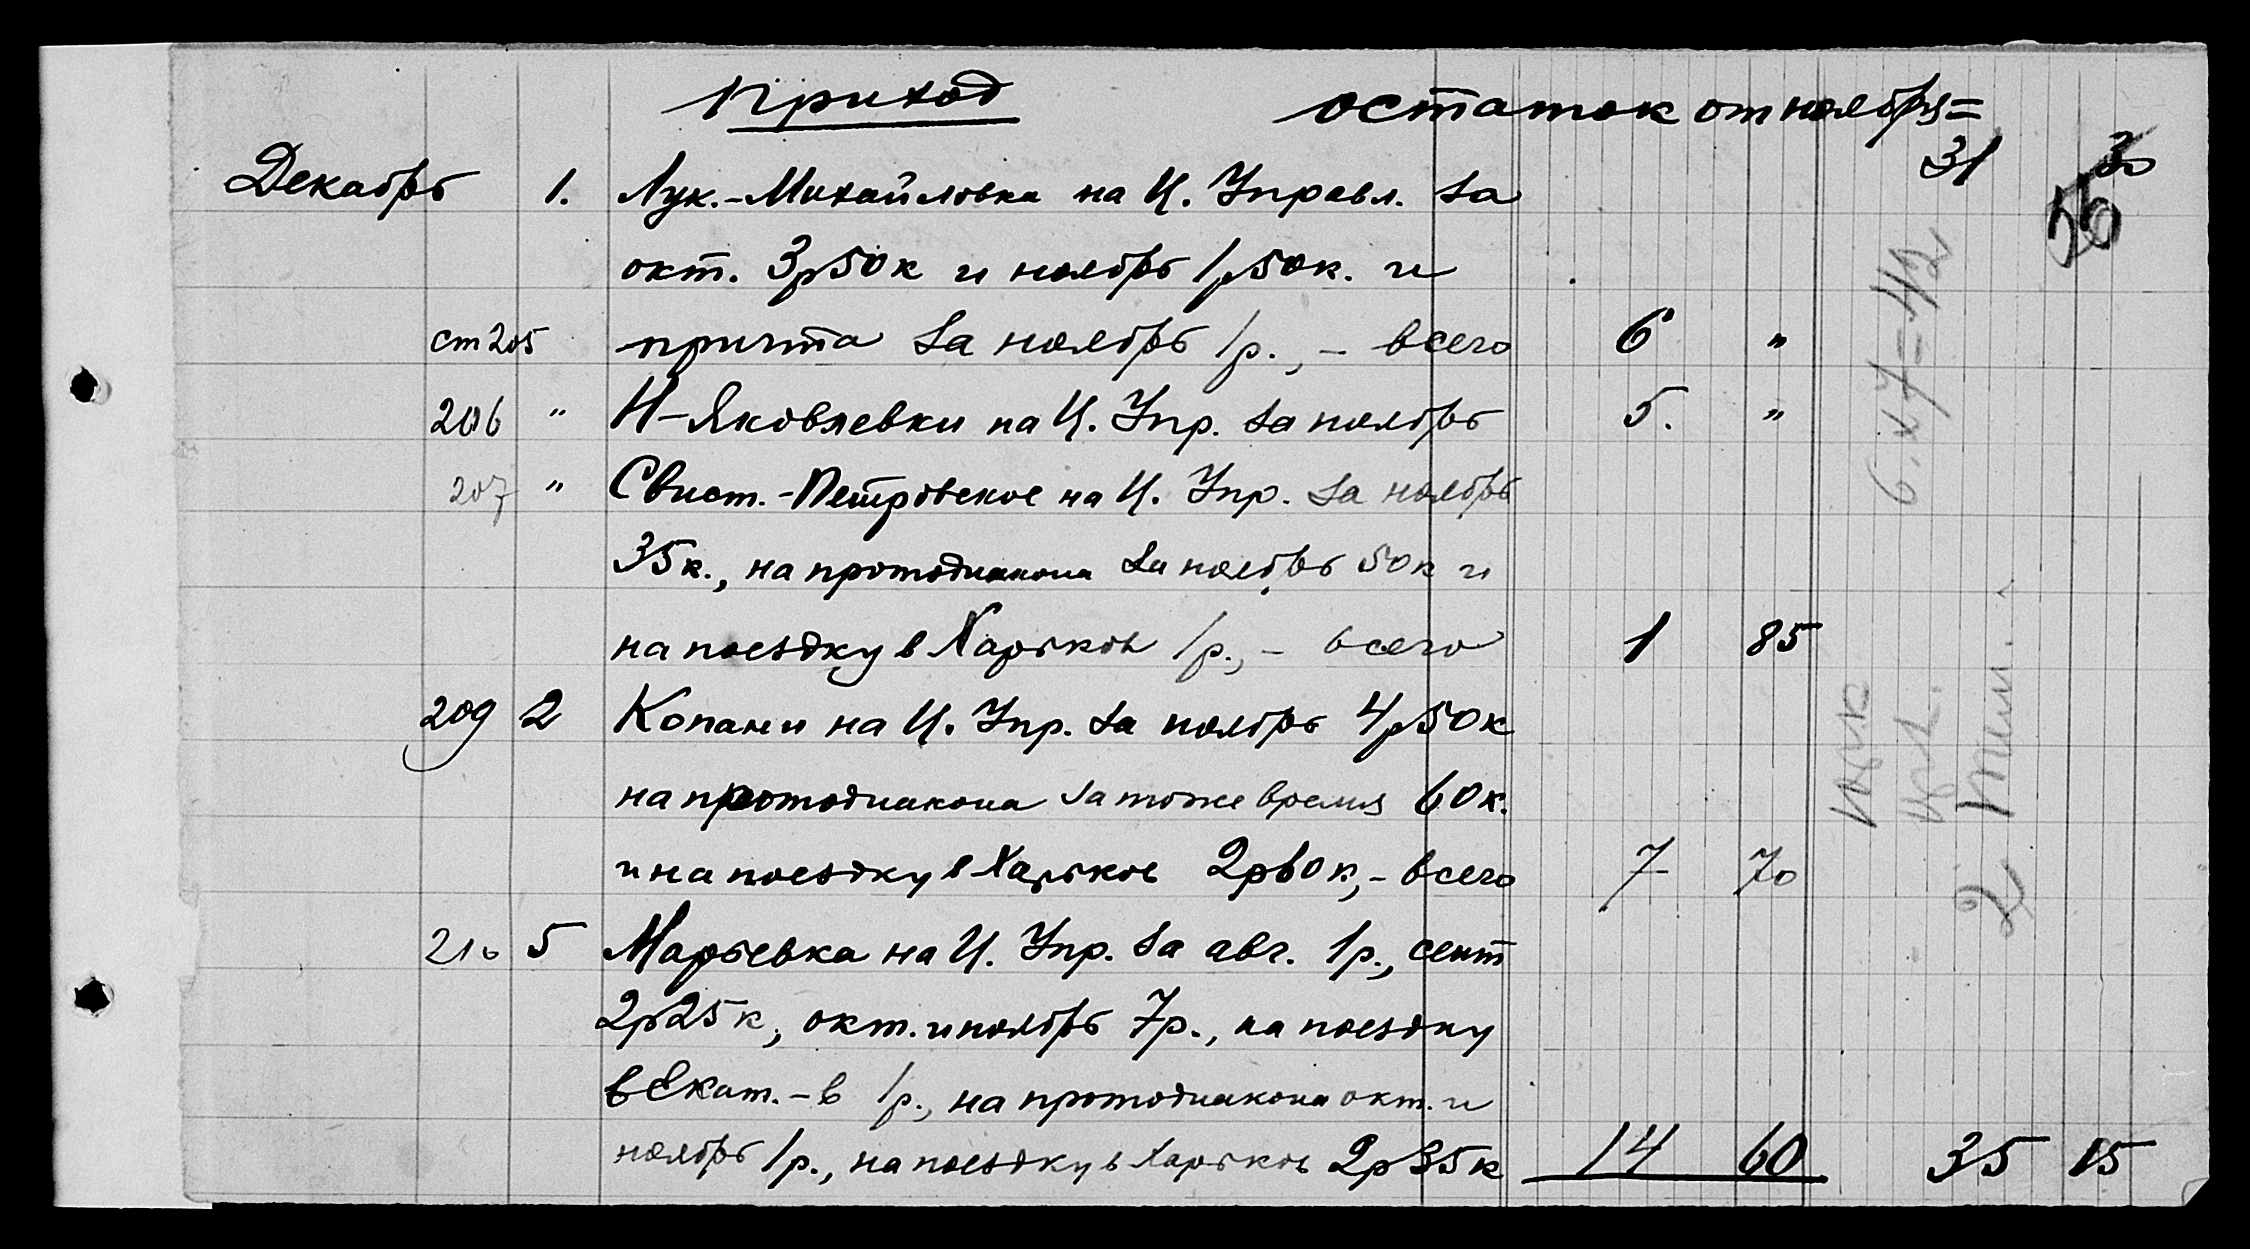 Приход остаток от ноября=
31
Декабрь 1. Лук.-Михайловка на Ц. Управл. за
окт. 3р50к и ноябрь 1р50к. и
ст 205 причта за ноябрь 1р., - всего 6 "
206 " Н-Яковлевки на Ц. Упр. за ноябрь 5. "
207 " Свист.-Петровское на Ц. Упр. за ноябрь
35к., на протодиакона за ноябрь 50к и
на поездку в Харьков 1р., - всего 1 85
209 2 Копани на Ц. Упр. за ноябрь 4р50к
на протодиакона за тоже время 60к.
и на поездку в Харьков 2р60к, - всего 7 70
210 5 Марьевка на Ц. Упр. за авг. 1р., сент
2р25к, окт. и ноябрь 7р., на поездку
в Екат.-в 1р., на протодиакона окт. и
ноябрь 1р., на поездку в Харьков 2р35к 14 60 35 15
6.х7=42
2